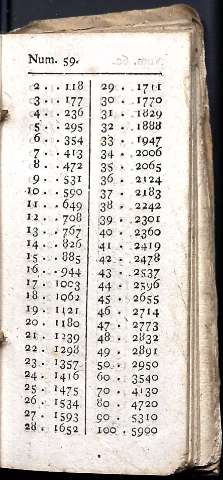 Num. 59.
2 . . 118
3 . . 177
4 . . 236
5 . . 295
6 . . 354
7 . . 413
8 . . 472
9 . . 531
10 . . 590
11 . . 649
12 . . 708
13 . . 767
14 . . 826
15 . . 885
16 . . 944
17 . 1003
18 . 1062
19 . 1121
20 . 1180
21 . 1239
22 . 1298
23 . 1357
24 . 1416
25 . 1475
26 . 1534
27 . 1593
28 . 1652
29 . . 1711
30 . . 1770
31 . . 1829
32 . . 1888
33 . . 1947
34 . . 2006
35 . . 2065
36 . . 2124
37 . . 2183
38 . . 2242
39 . . 2301
40 . . 2360
41 . . 2419
42 . . 2478
43 . . 2537
44 . . 2596
45 . . 2655
46 . . 2714
47 . . 2773
48 . . 2832
49 . . 2891
50 . . 2950
60 . . 3540
70 . . 4130
80 . . 4720
90 . . 5310
100 . 5900